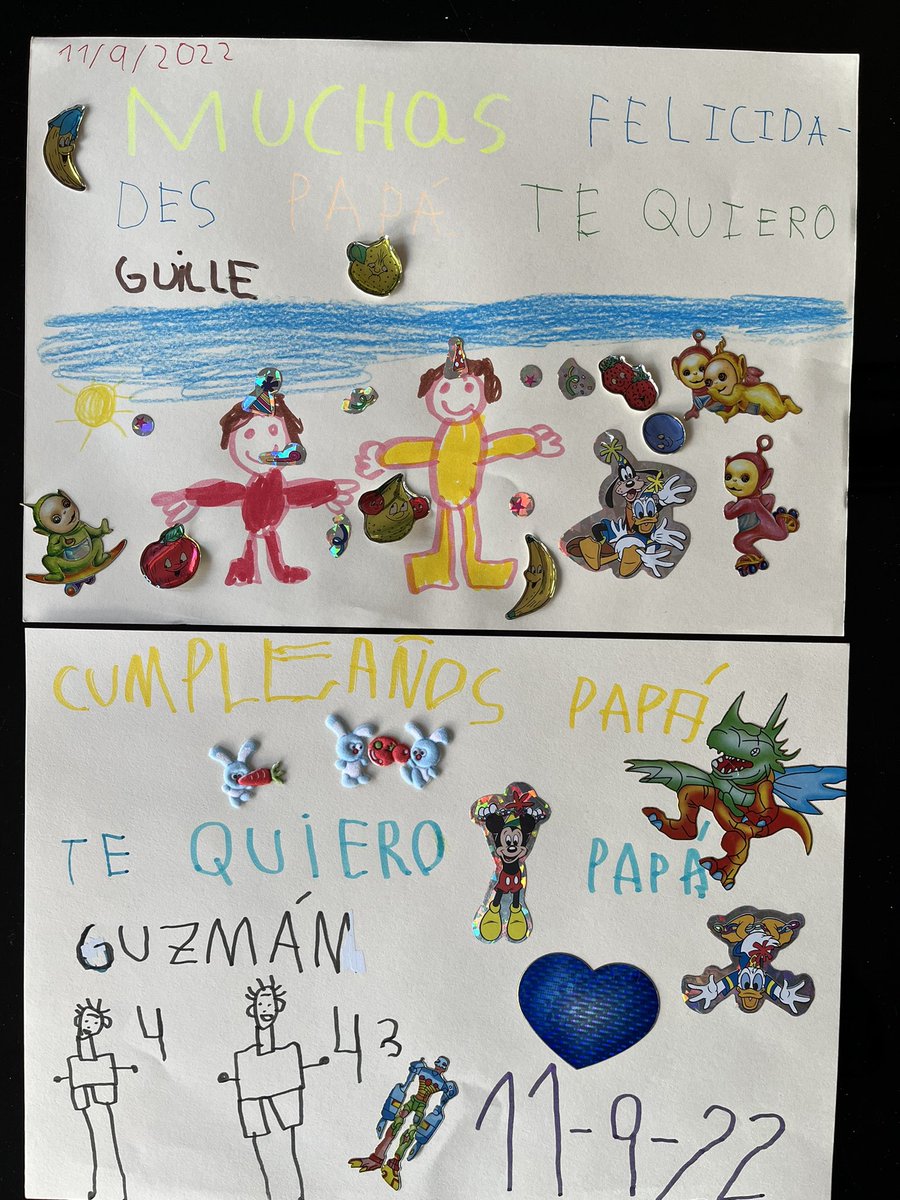 11/9/2022
MUCHAS FELICIDA-
DES PAPÁ TE QUIERO
GUILLE
CUMPLEAÑOS PAPÁ
TE QUIERO PAPÁ
GUZMÁN
4 43
11-9-22